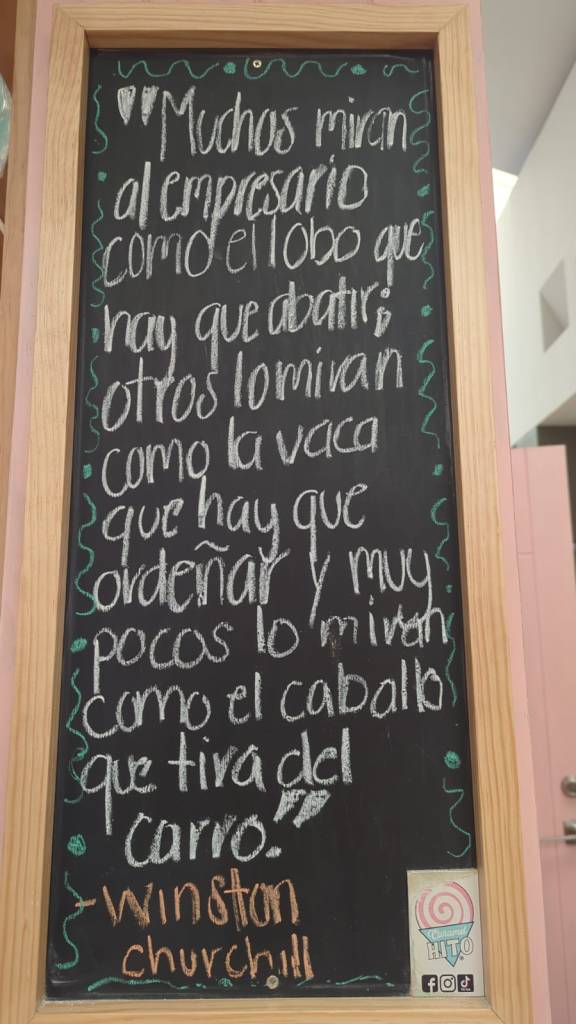 "Muchos miran
al empresario
como el lobo que
hay que abatir;
otros lo miran
como la vaca
que hay que
ordeñar y muy
pocos lo miran
como el caballo
que tira del
carro."
- Winston
churchill
Caramel
HITO